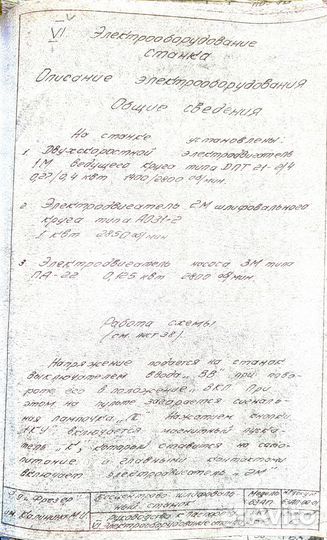 VI Электрооборудование
станка
Описание электрооборудования
Общие сведения
На станке установлены:
1. Двухскоростной электродвигатель
1М ведущего круга типа ДПТ 21-2/4
0,27/0,4 квт 1400/2800 об/мин.
2. Электродвигатель 2М шлифовального
круга типа АОЛ1-2
1 квт 2850 об/мин
3. Электродвигатель насоса 3М типа
ПА-22 0,125 квт 2800 об/мин.
Работа схемы
(см. лист 38).
Напряжение подается на станок
выключателем ввода "ВВ" при пово-
роте его в положение "ВКЛ" при
этом на пульте загарается сигналь-
ная лампочка "Л". Нажатием кнопки
"1КУ" включается магнитный пуска-
тель "К", который ставится на само-
питание и главными контактами
включает электродвигатель
"Фрезер"
Бесцентрово шлифоваль
ный станок
Модель
им. Калинина М.И.
Руководство к паспорту
VI Электрооборудование станка
Avito